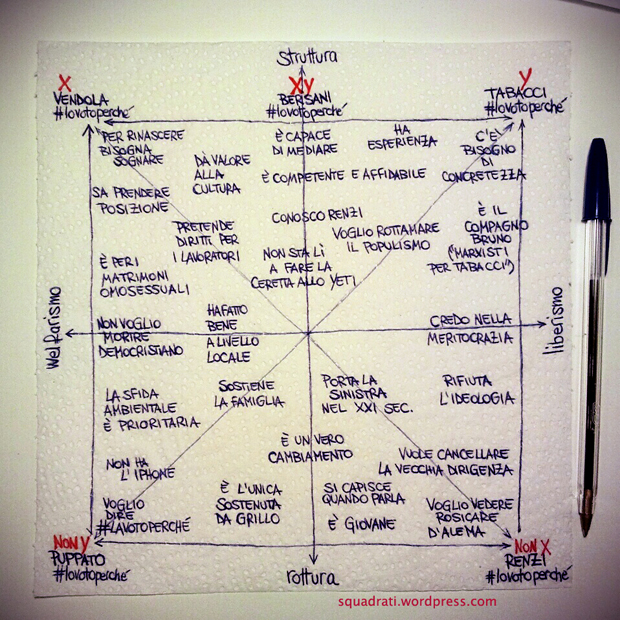 struttura
X
VENDOLA
#lovotoperché
Xy
BERSANI
#lovotoperché
y
TABACCI
#lovotoperché
PER RINASCERE
BISOGNA
SOGNARE
DÀ VALORE
ALLA
CULTURA
È CAPACE
DI MEDIARE
HA
ESPERIENZA
C'È
BISOGNO
DI
CONCRETEZZA
È COMPETENTE E AFFIDABILE
SA PRENDERE
POSIZIONE
PRETENDE
DIRITTI PER
I LAVORATORI
CONOSCO RENZI
VOGLIO ROTTAMARE
IL POPULISMO
È IL
COMPAGNO
BRUNO
("MARXISTI
PER TABACCI")
NON STA LÌ
A FARE LA
CERETTA ALLO YETI
È PER I
MATRIMONI
OMOSESSUALI
welfarismo
liberismo
NON VOGLIO
MORIRE
DEMOCRISTIANO
HA FATTO
BENE
A LIVELLO
LOCALE
CREDO NELLA
MERITOCRAZIA
LA SFIDA
AMBIENTALE
È PRIORITARIA
SOSTIENE
LA FAMIGLIA
PORTA LA
SINISTRA
NEL XXI SEC.
RIFIUTA
L'IDEOLOGIA
È UN VERO
CAMBIAMENTO
VUOLE CANCELLARE
LA VECCHIA DIRIGENZA
NON HA
L'IPHONE
VOGLIO
DIRE
#LAVOTOPERCHÉ
È L'UNICA
SOSTENUTA
DA GRILLO
SI CAPISCE
QUANDO PARLA
E' GIOVANE
VOGLIO VEDERE
ROSICARE
D'ALEMA
NON y
PUPPATO
#lovotoperché
rottura
NON X
RENZI
#lovotoperché
squadrati.wordpress.com